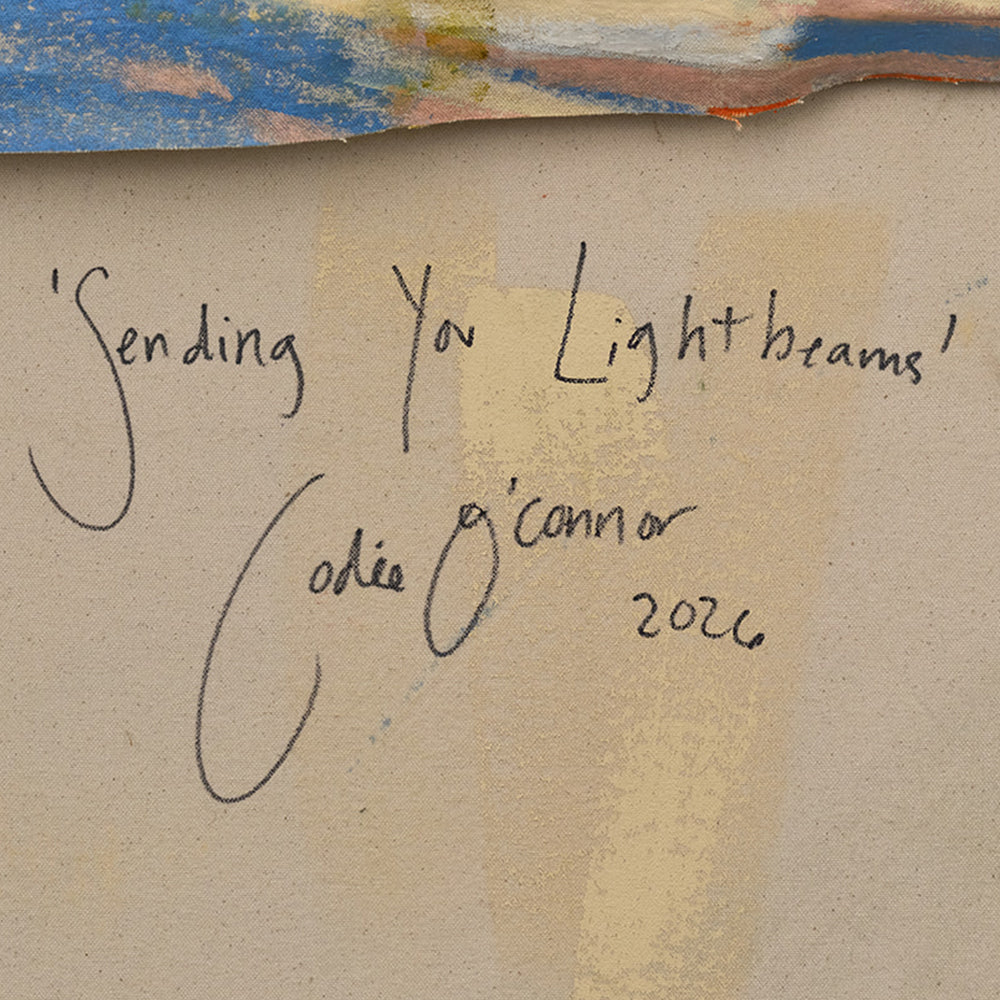 'Sending You Lightbeams'
Codie O'connor
2026